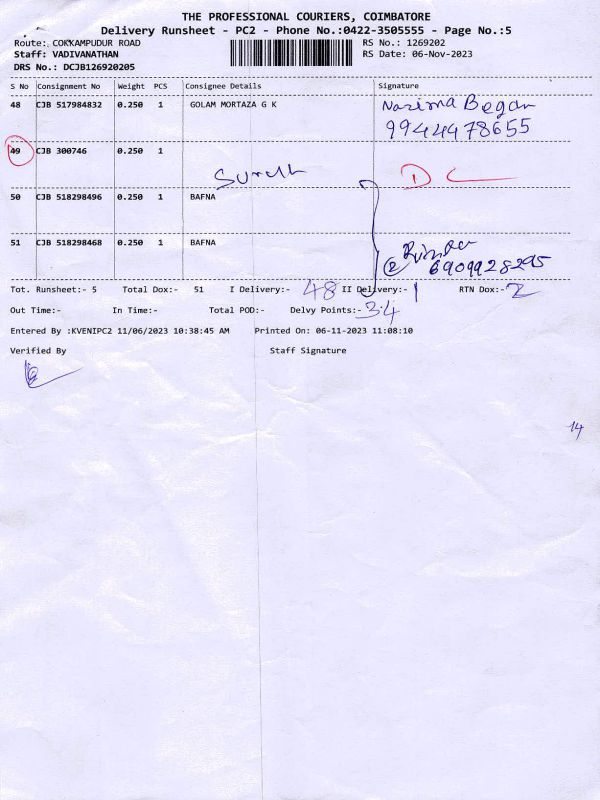 THE PROFESSIONAL COURIERS, COIMBATORE
Delivery Runsheet - PC2 - Phone No.:0422-3505555 - Page No.:5
Route:. COKKAMPUDUR ROAD
RS No.: 1269202
Staff: VADIVANATHAN
RS Date: 06-Nov-2023
DRS No.: DCJB126920205
S No Consignment No Weight PCS Consignee Details Signature
48 CJB 517984832 0.250 1 GOLAM MORTAZA G K Nazima Began
9944478655
49 CJB 300746 0.250 1
Suresh DC
50 CJB 518298496 0.250 1 BAFNA
51 CJB 518298468 0.250 1 BAFNA
② 6909928295
Tot. Runsheet:- 5 Total Dox:- 51 I Delivery:- 48 II Delivery:- 1 RTN Dox:- 2
Out Time:- In Time:- Total POD:- Delvy Points:- 34
Entered By :KVENIPC2 11/06/2023 10:38:45 AM Printed On: 06-11-2023 11:08:10
Verified By Staff Signature
14